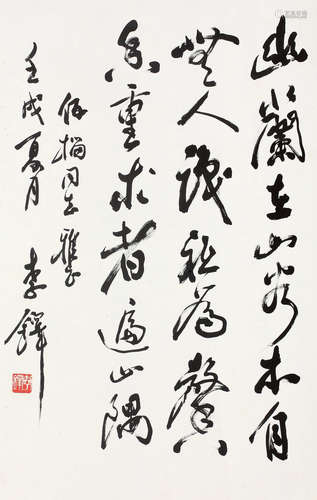 幽蘭在山谷本自
無人識祇為馨
香重求者遍山隅
同志雅
壬戌夏月
李鐸